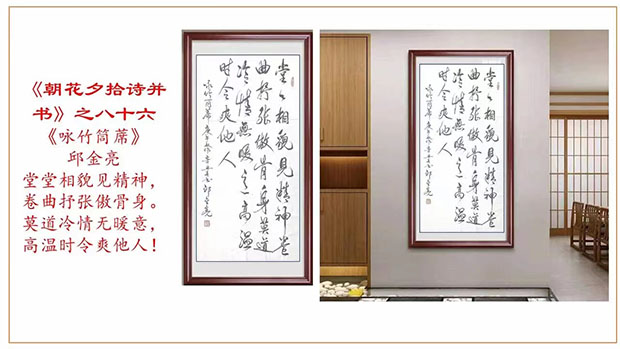 《朝花夕拾诗并
书》之八十六
《咏竹筒蓆》
邱金亮
堂堂相貌见精神，
卷曲抒张傲骨身。
莫道冷情无暖意，
高温时令爽他人！
堂〻相貌見精神卷
曲抒张傲骨身莫道
冷情無暖意高温
时令爽他人
咏竹筒蓆 邱金亮
堂〻相貌見精神卷
曲抒张傲骨身莫道
冷情無暖意高温
时令爽他人
咏竹筒蓆 邱金亮